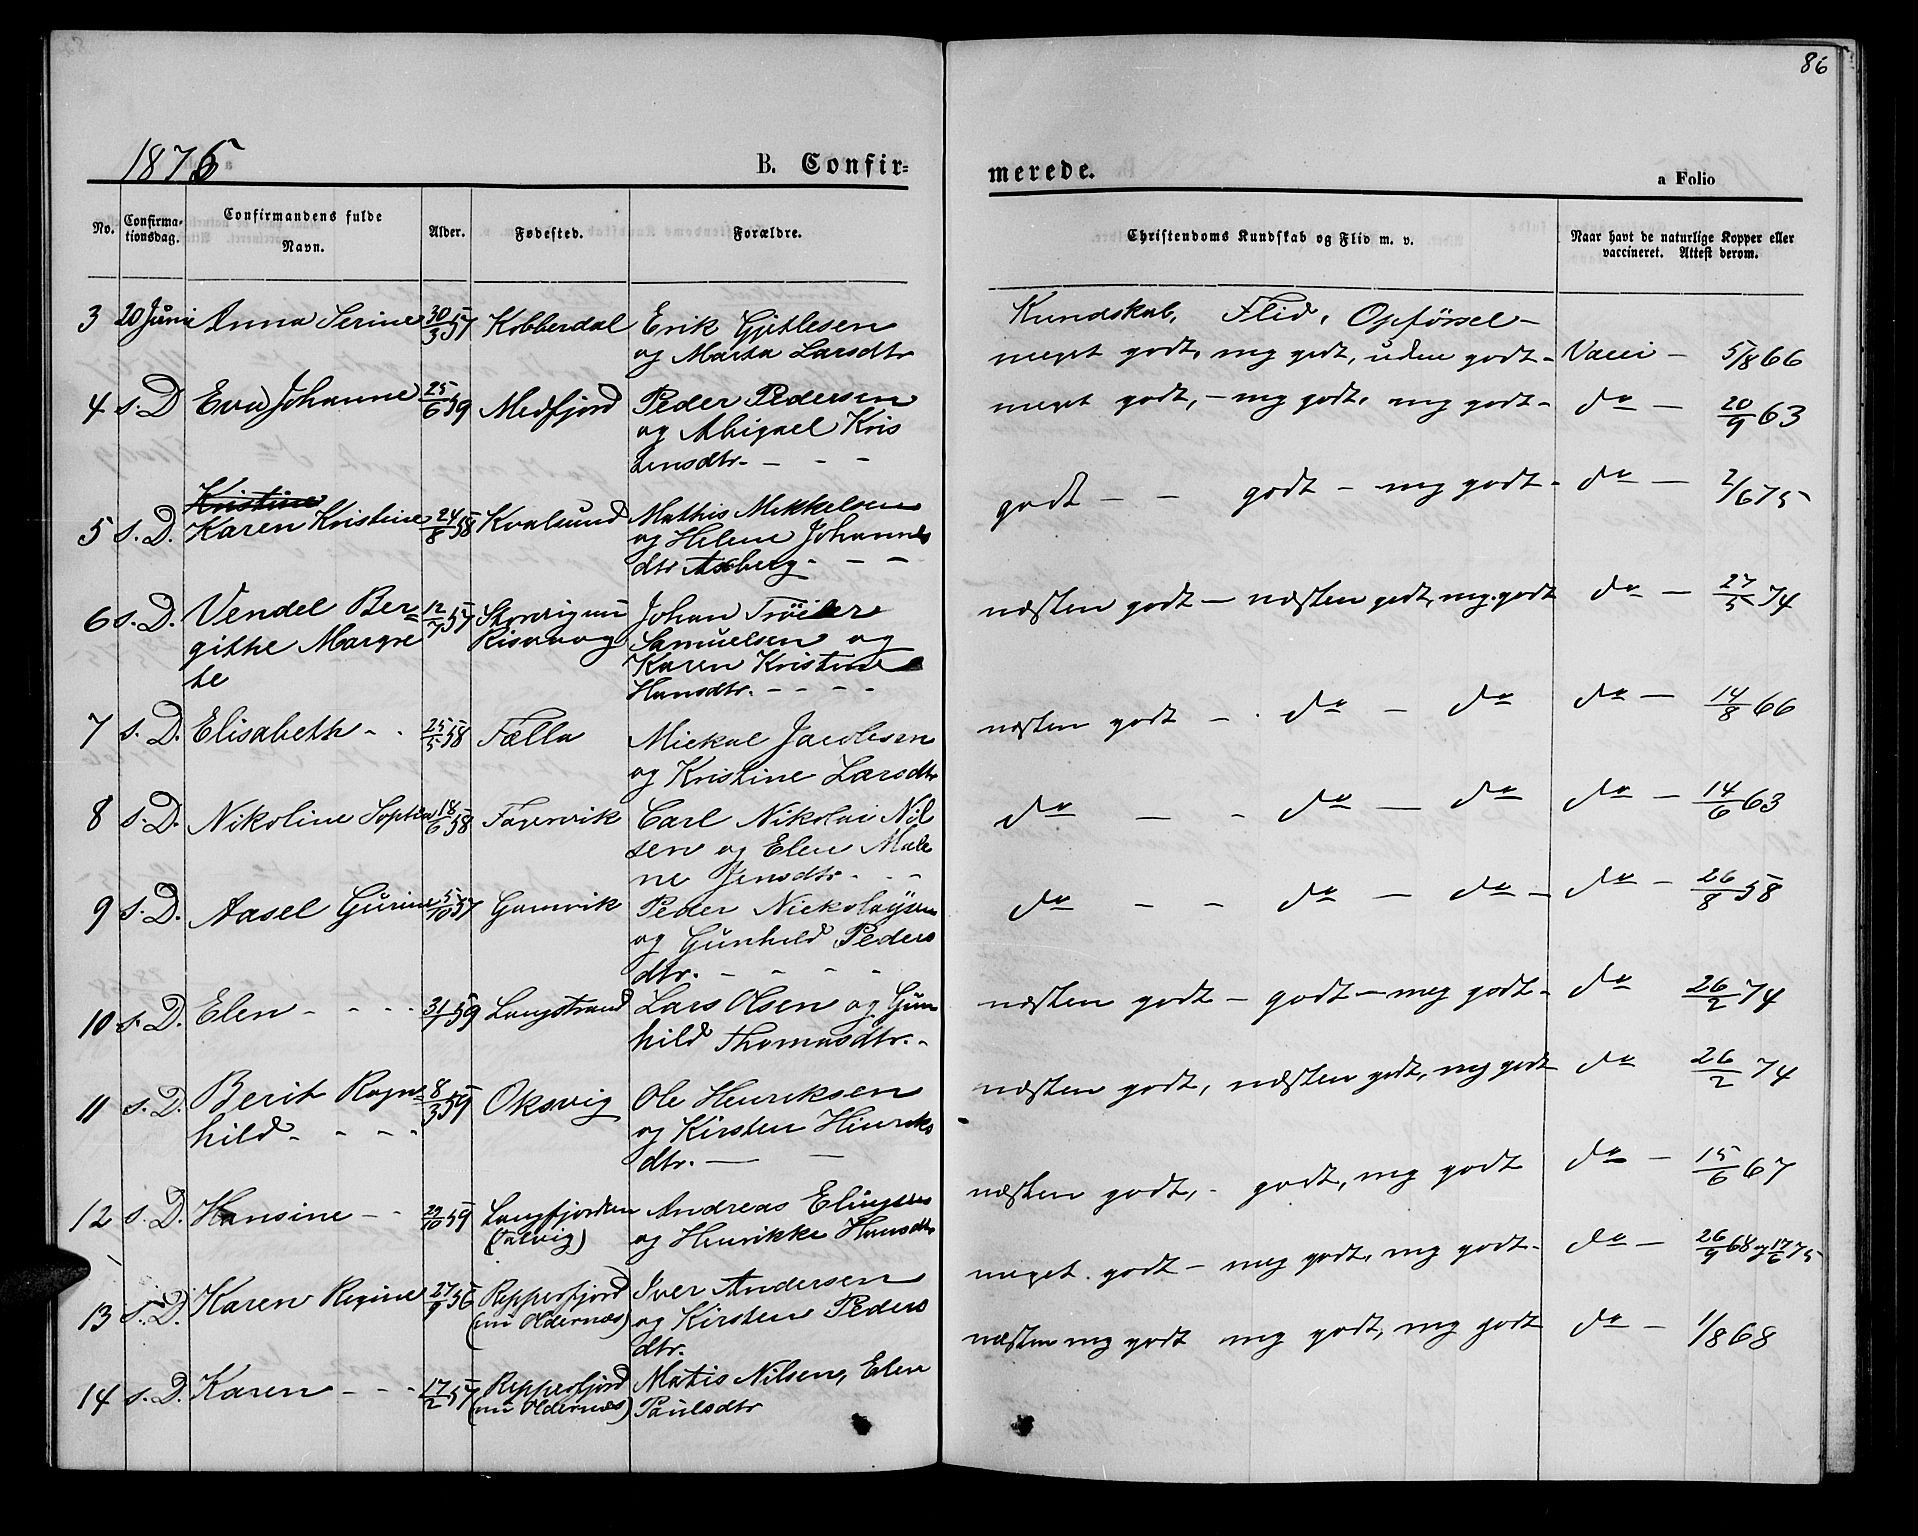 86
1875
B. Confir=
merede.
a Folio
No.
Confirma-
tionsdag.
Confirmandens fulde
Navn.
Alder.
Fødested.
Forældre.
Christendoms Kundskab og Flid m. v.
Naar havt de naturlige Kopper eller
vaccineret. Attest derom.
Kundskab, Flid, Opförsel -
3 20 Juni Anna Serine 30/3 57 Kobberdal Erik
og Marta Larsdtr
meget godt, mg godt, uden godt - Vacci - 5/8 66
4 s. D Eva Johanne 25/6 59 Medfjord Peder Pedersen
og Abigael Kris
tensdtr. - - -
meget godt, - mg godt, mg godt - do - 20/9 63
Kristine
5 s. D. Karen Kristine 24/8 58 Kvalsund Mathis Mikkelsen
og Helene Johannes
dtr Axberg - - -
godt - - godt - mg godt - do - 2/6 75
6 s. D. Vendel Ber= 12/7 57 Johan
gitthe Margre Risavaag Samuelsen og
te Karen Kristine
Hansdtr. - - - -
næsten godt - næsten godt, mg. godt do - 27/5 74
7 s. D. Elisabeth - - 25/5 58 Fælla Mickal Jacobsen
og Kristine Larsdtr
næsten godt - - do - do do - 14/8 66
8 s. D. Nikoline Sophia 18/6 58 Carl Nikolai Nil
sen og Elen Male
ne Jensdtr. - -
do - - do - do do - 14/6 63
9 s. D. Aasel Gurine 5/10 57 Gamvik Peder Nickolaysen
og Gunhild Peders
dtr. - - - -
do - - do - do - do - 26/8 58
10 s. D. Elen - - - - 31/1 59 Langstrand Lars Olsen og Gun
hild Thomasdtr. -
næsten godt - godt - meg godt - do 26/2 74
11 s. D. Berit Ragn= 8/3 59 Oksvig Ole Henriksen
hild - - - - og Kirsten Hinriks
dtr. - -
næsten godt, næsten godt, mg godt do 26/2 74
12 s. D. Hansine - - 29/10 59 Langfjorden Andreas
(Talvig) og Henrikke Hansdtr
næsten godt, - godt, mg godt do - 15/6 67
13 s. D. Karen Regine 27/9 56 Repperfjord Iver Andersen
(nu Oldernæs) og Kirsten Peders
dtr.
meget godt - meg godt, mg godt - do - 26/9 68 og 17/6 75
14 s. D. Karen - - - 17/2 57 Repperfjord Matis Nilsen, Elen
(nu Oldernæs) Paulsdtr
næsten mg godt mg godt, mg godt do - 1/8 68